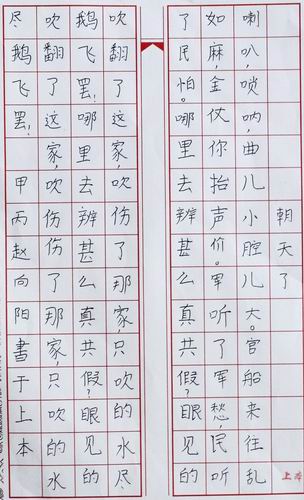 朝天了
喇叭，唢呐，曲儿小腔儿大。官船来往乱
如麻，金仗你抬声价。军听了军愁，民听
了民怕。哪里去辨甚么真共假？眼见的
吹翻了这家，吹伤了那家，只吹的水尽
鹅飞罢！哪里去辨甚么真共假？眼见的
吹翻了这家，吹伤伤了那家，只吹的水
尽鹅飞罢！甲丙赵向阳書于上本
上